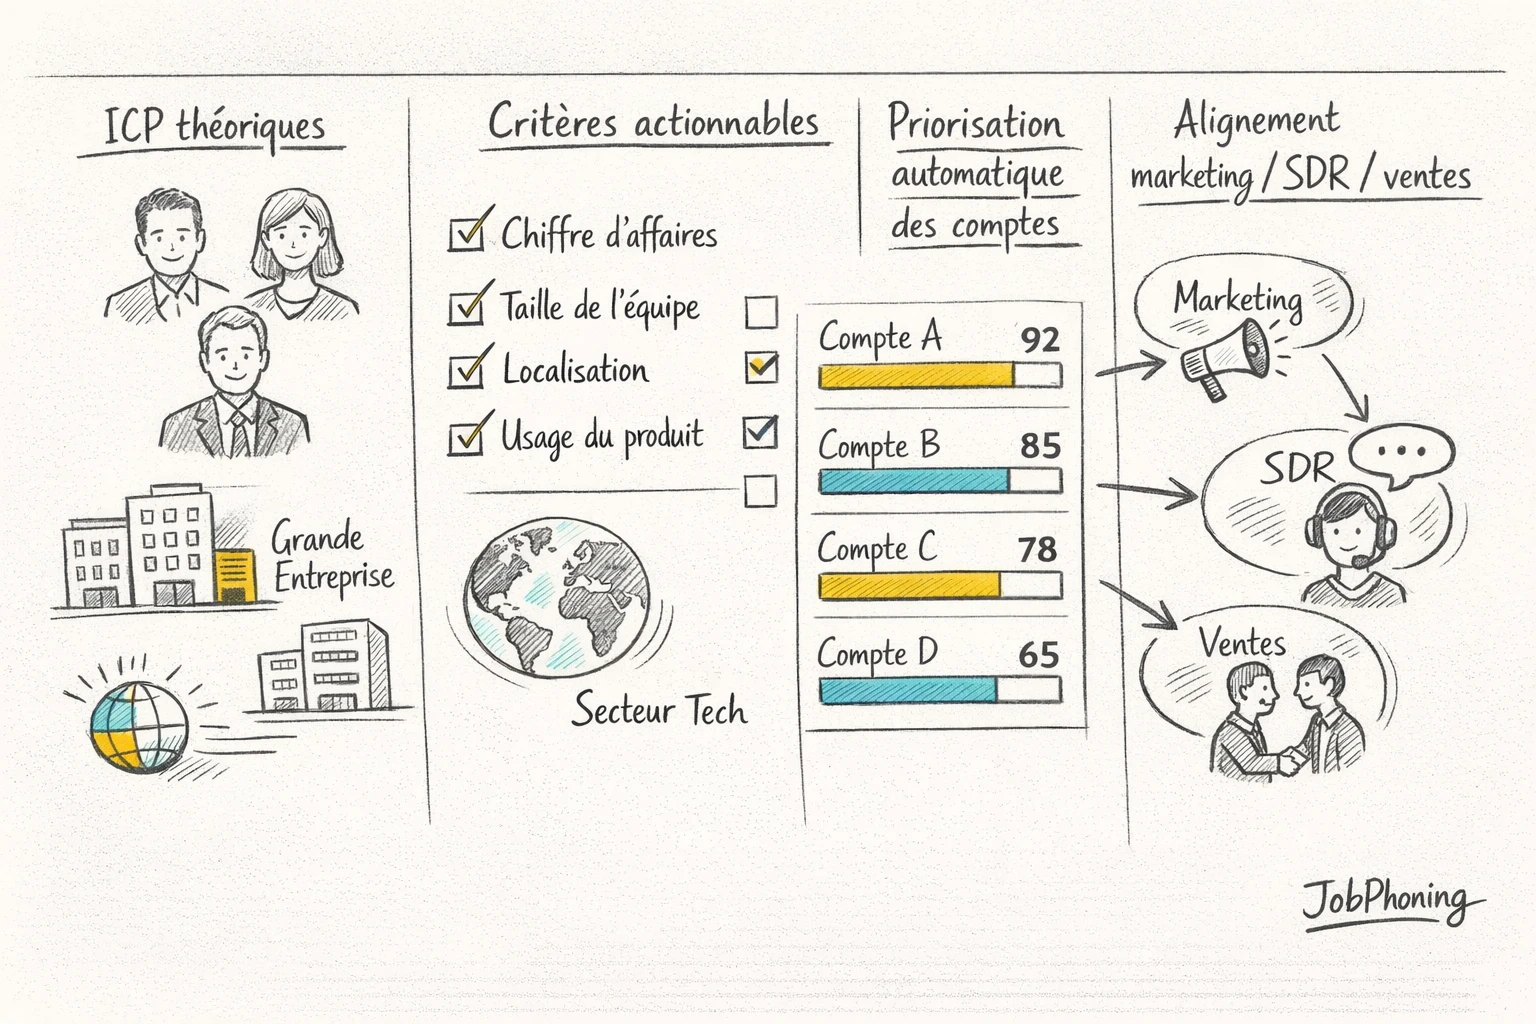 ICP théoriques
Grande
Entreprise
Critères actionnables
Chiffre d'affaires
Taille de l'équipe
Localisation
Usage du produit
Secteur Tech
Priorisation
automatique
des comptes
Compte A 92
Compte B 85
Compte C 78
Compte D 65
Alignement
marketing / SDR / ventes
Marketing
SDR
Ventes
JobPhoning